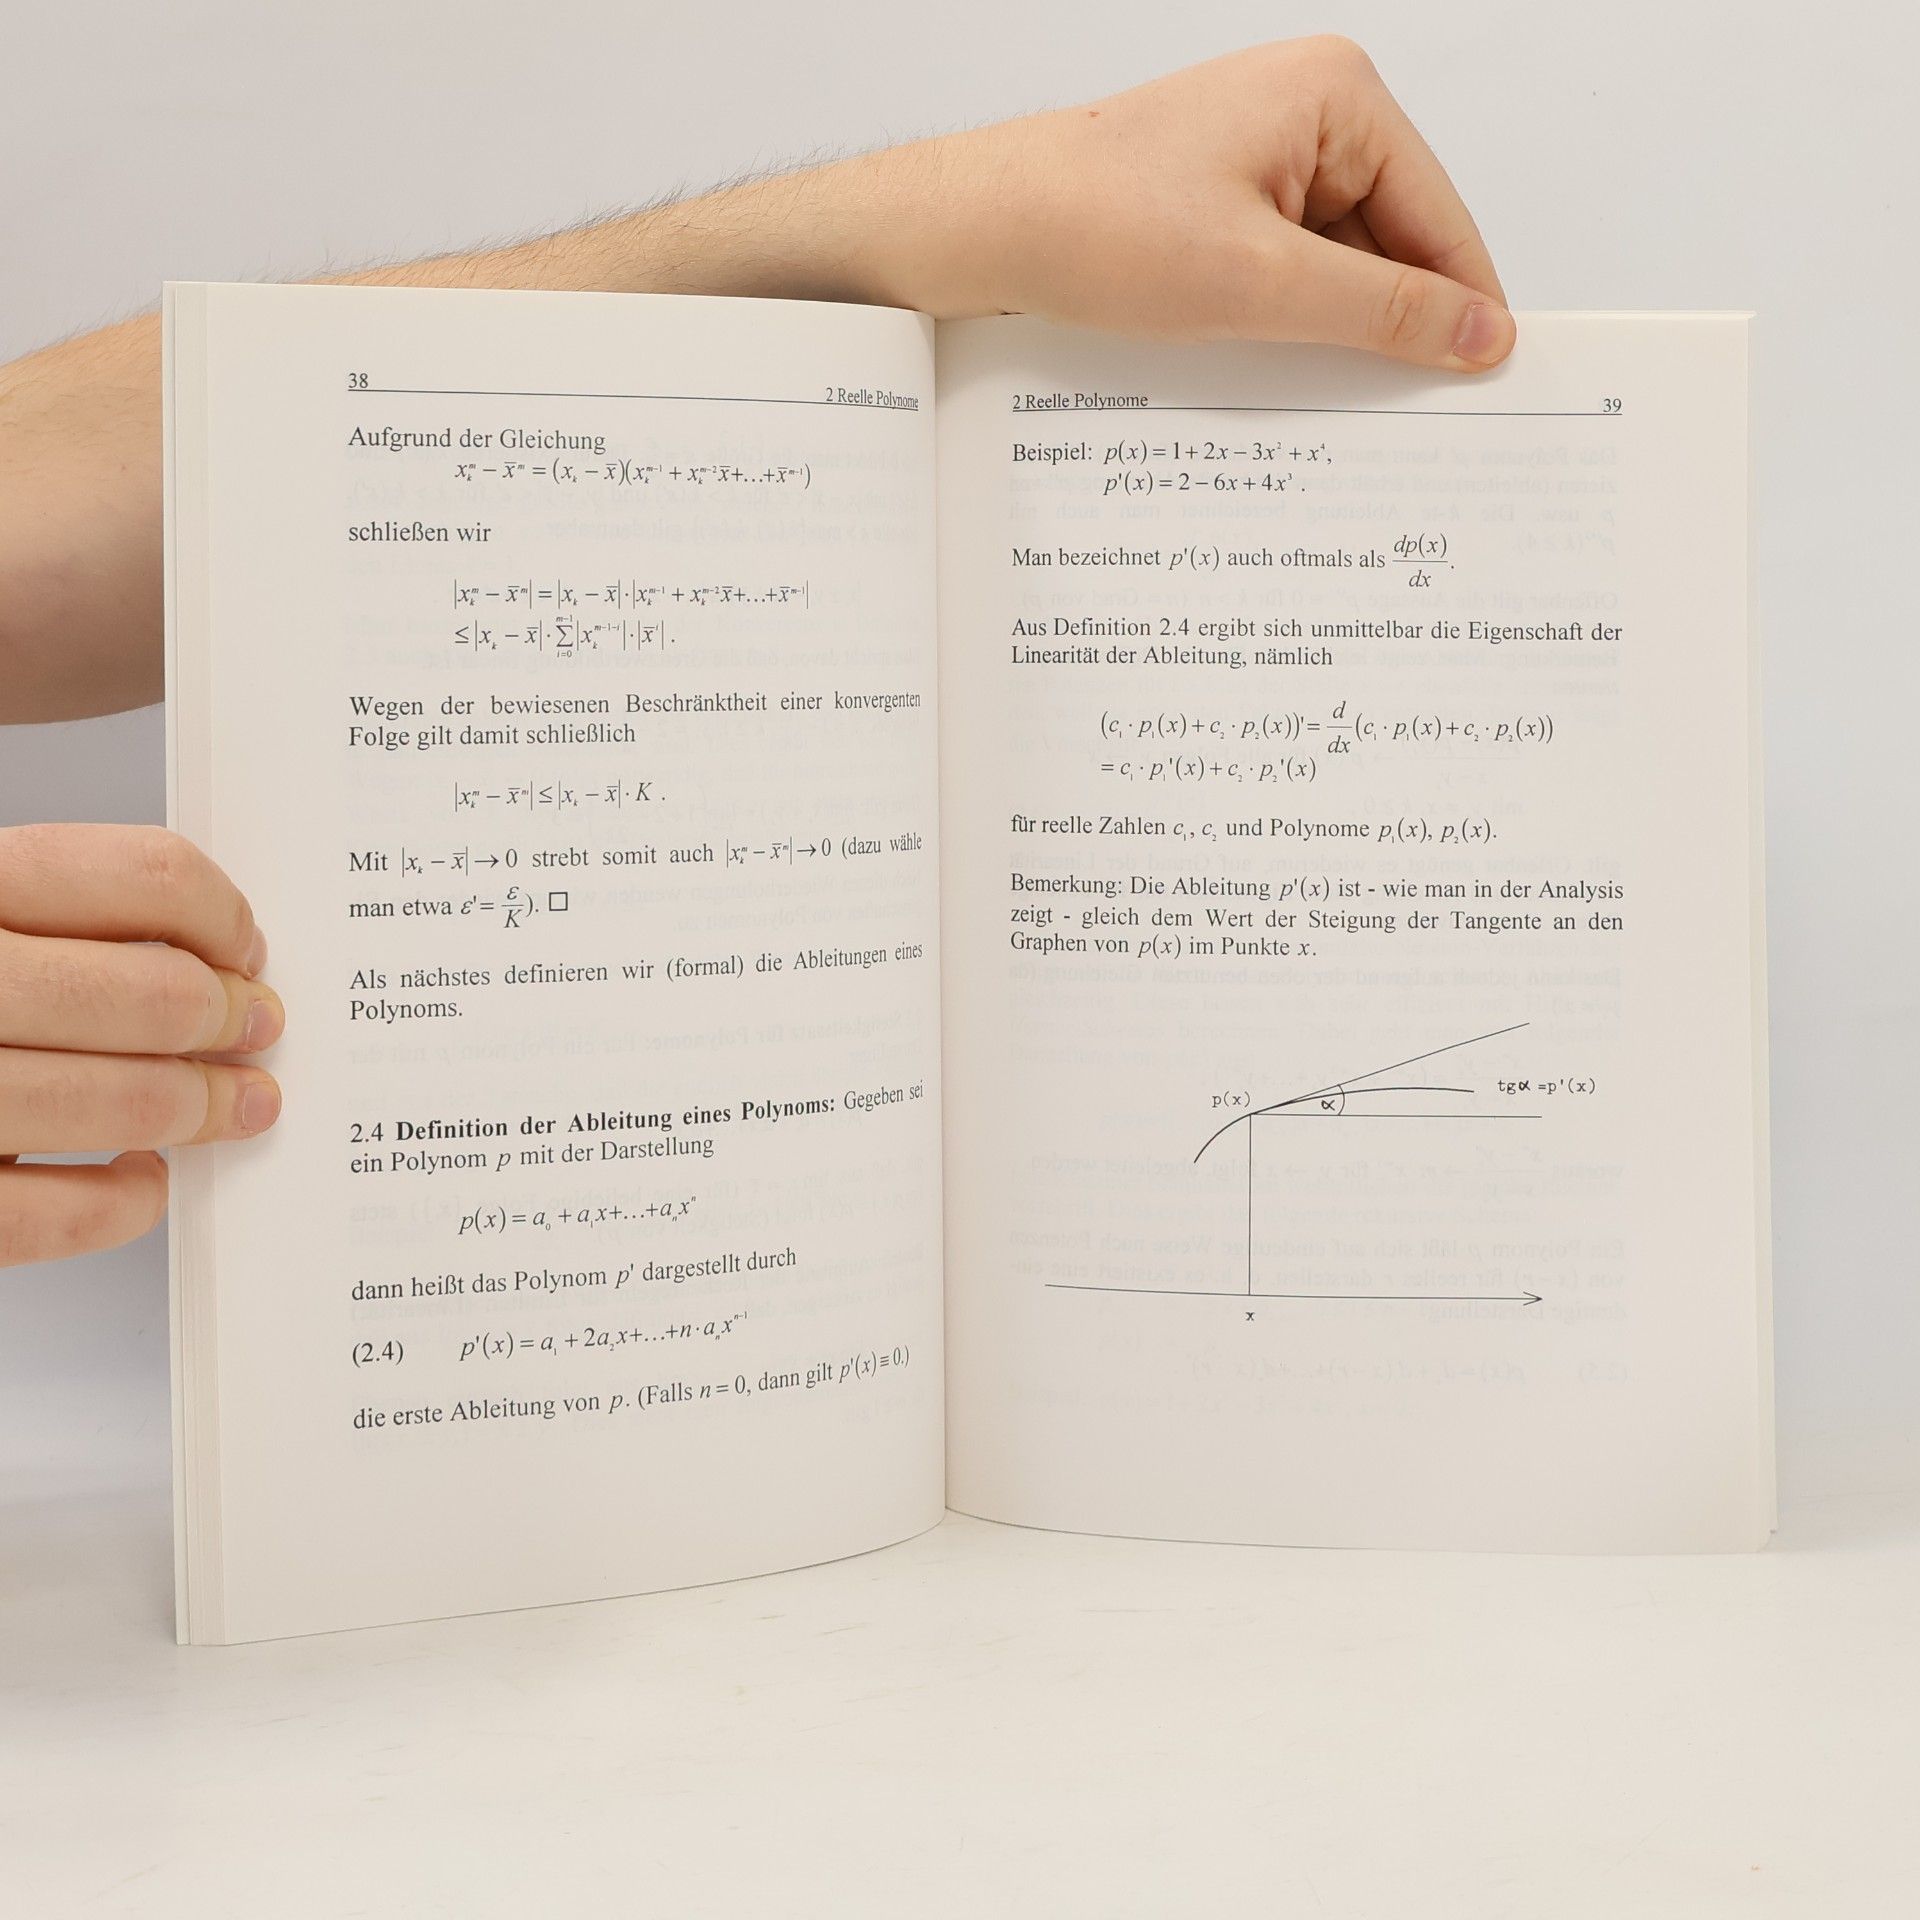 38
2 Reelle Polynome
Aufgrund der Gleichung
xₖᵐ − x̅ᵐ = (xₖ − x̅)(xₖᵐ⁻¹ + xₖᵐ⁻²x̅+...+x̅ᵐ⁻¹)
schließen wir
|xₖᵐ − x̅ᵐ| = |xₖ − x̅|·|xₖᵐ⁻¹ + xₖᵐ⁻²x̅+...+x̅ᵐ⁻¹|
≤ |xₖ − x̅|· ∑_{i=0}^{m−1} |xₖᵐ⁻¹⁻ⁱ|·|x̅ⁱ| .
Wegen der bewiesenen Beschränktheit einer konvergenten
Folge gilt damit schließlich
|xₖᵐ − x̅ᵐ| ≤ |xₖ − x̅|· K .
Mit |xₖ − x̅| → 0 strebt somit auch |xₖᵐ − x̅ᵐ| → 0 (dazu wähle
man etwa ε'= ε/K). □
Als nächstes definieren wir (formal) die Ableitungen eines
Polynoms.
2.4 Definition der Ableitung eines Polynoms: Gegeben sei
ein Polynom p mit der Darstellung
p(x) = a₀ + a₁x+...+aₙxⁿ
dann heißt das Polynom p' dargestellt durch
(2.4) p'(x) = a₁ + 2a₂x+...+n·aₙxⁿ⁻¹
die erste Ableitung von p. (Falls n = 0, dann gilt p'(x) ≡ 0.)
2 Reelle Polynome
39
Beispiel: p(x) = 1 + 2x − 3x² + x⁴,
p'(x) = 2 − 6x + 4x³ .
Man bezeichnet p'(x) auch oftmals als dp(x)/dx.
Aus Definition 2.4 ergibt sich unmittelbar die Eigenschaft der
Linearität der Ableitung, nämlich
(c₁·p₁(x) + c₂·p₂(x))'= d/dx (c₁·p₁(x) + c₂·p₂(x))
= c₁·p₁'(x) + c₂·p₂'(x)
für reelle Zahlen c₁, c₂ und Polynome p₁(x), p₂(x).
Bemerkung: Die Ableitung p'(x) ist - wie man in der Analysis
zeigt - gleich dem Wert der Steigung der Tangente an den
Graphen von p(x) im Punkte x.
p(x)
α
tgα =p'(x)
x